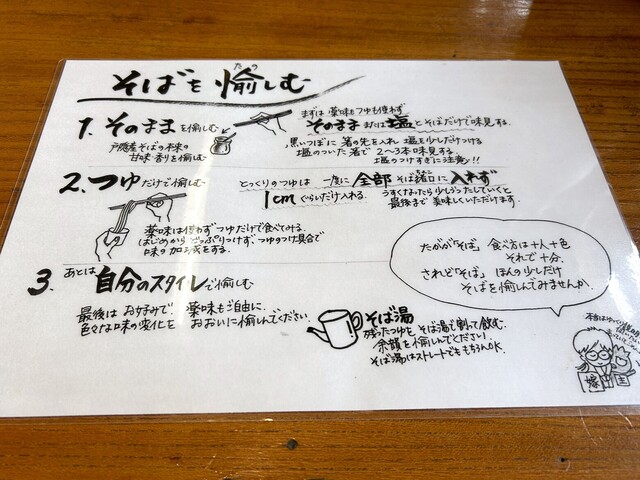 そばを愉しむ
たの
1. そのままを愉しむ
戸隠産そばの本来の
甘味・香りを愉しむ
まずは 薬味もつゆも使わず
そのまま または 塩とそばだけで味見する。
黒いつぼに 箸の先を入れ 塩を少しだけつける
塩のついた箸で 2〜3本味見する
塩のつけすぎに注意!!
2. つゆだけで愉しむ
薬味は使わず つゆだけで食べてみる。
はじめから どっぷりつけず、つゆのつけ具合で
味の加減をする。
とっくりのつゆは 一度に 全部 そば猪口に 入れず
1cmぐらいだけ入れる。
うすくなったら少しづつたしていくと
最後まで 美味しくいただけます。
3. あとは 自分のスタイルで愉しむ
最後は お好みで 薬味もご自由に。
色々な味の変化を おおいに愉しんでください。
そば湯
残ったつゆを そば湯で割って飲む。
余韻を愉しんでください。
そば湯はストレートでももちろんOK
たかが「そば」 食べ方は十人十色
それで十分。
されど「そば」 ほんの少しだけ
そばを愉しんでみませんか。